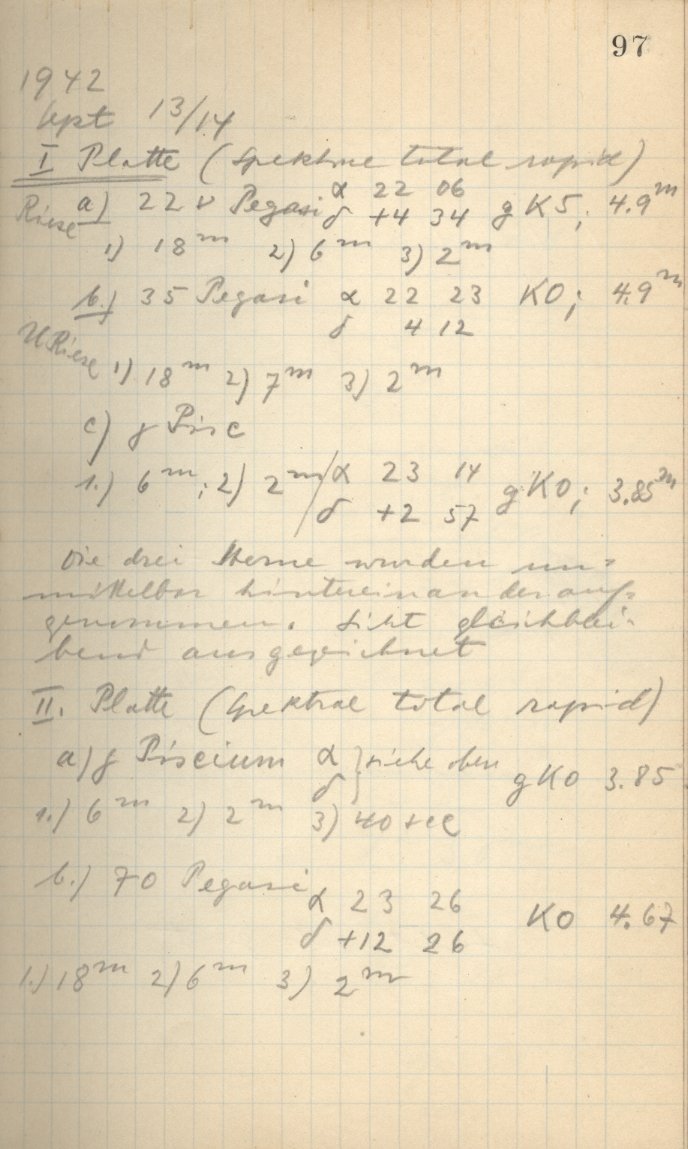 97
1942
Sept 13/14
I Platte (Spektral total rapid)
Riese a) 22 ν Pegasi α 22 06 gK5; 4.9m
δ +4 34
1) 18m 2) 6m 3) 2m
b.) 35 Pegasi α 22 23 K0; 4.9m
δ 4 12
Riese 1) 18m 2) 7m 3) 2m
c) γ Pisc
1.) 6m; 2) 2m / α 23 14 gK0; 3.85m
δ +2 57
Die drei Sterne wurden un=
mittelbar hintereinander auf=
genommen. Sicht gleichblei-
bend ausgezeichnet
II. Platte (Spektral total rapid)
a) γ Piscium α } siehe oben gK0 3.85
δ
1.) 6m 2) 2m 3) 40 sec
b.) 70 Pegasi
α 23 26 K0 4.67
δ +12 26
1.) 18m 2) 6m 3) 2m